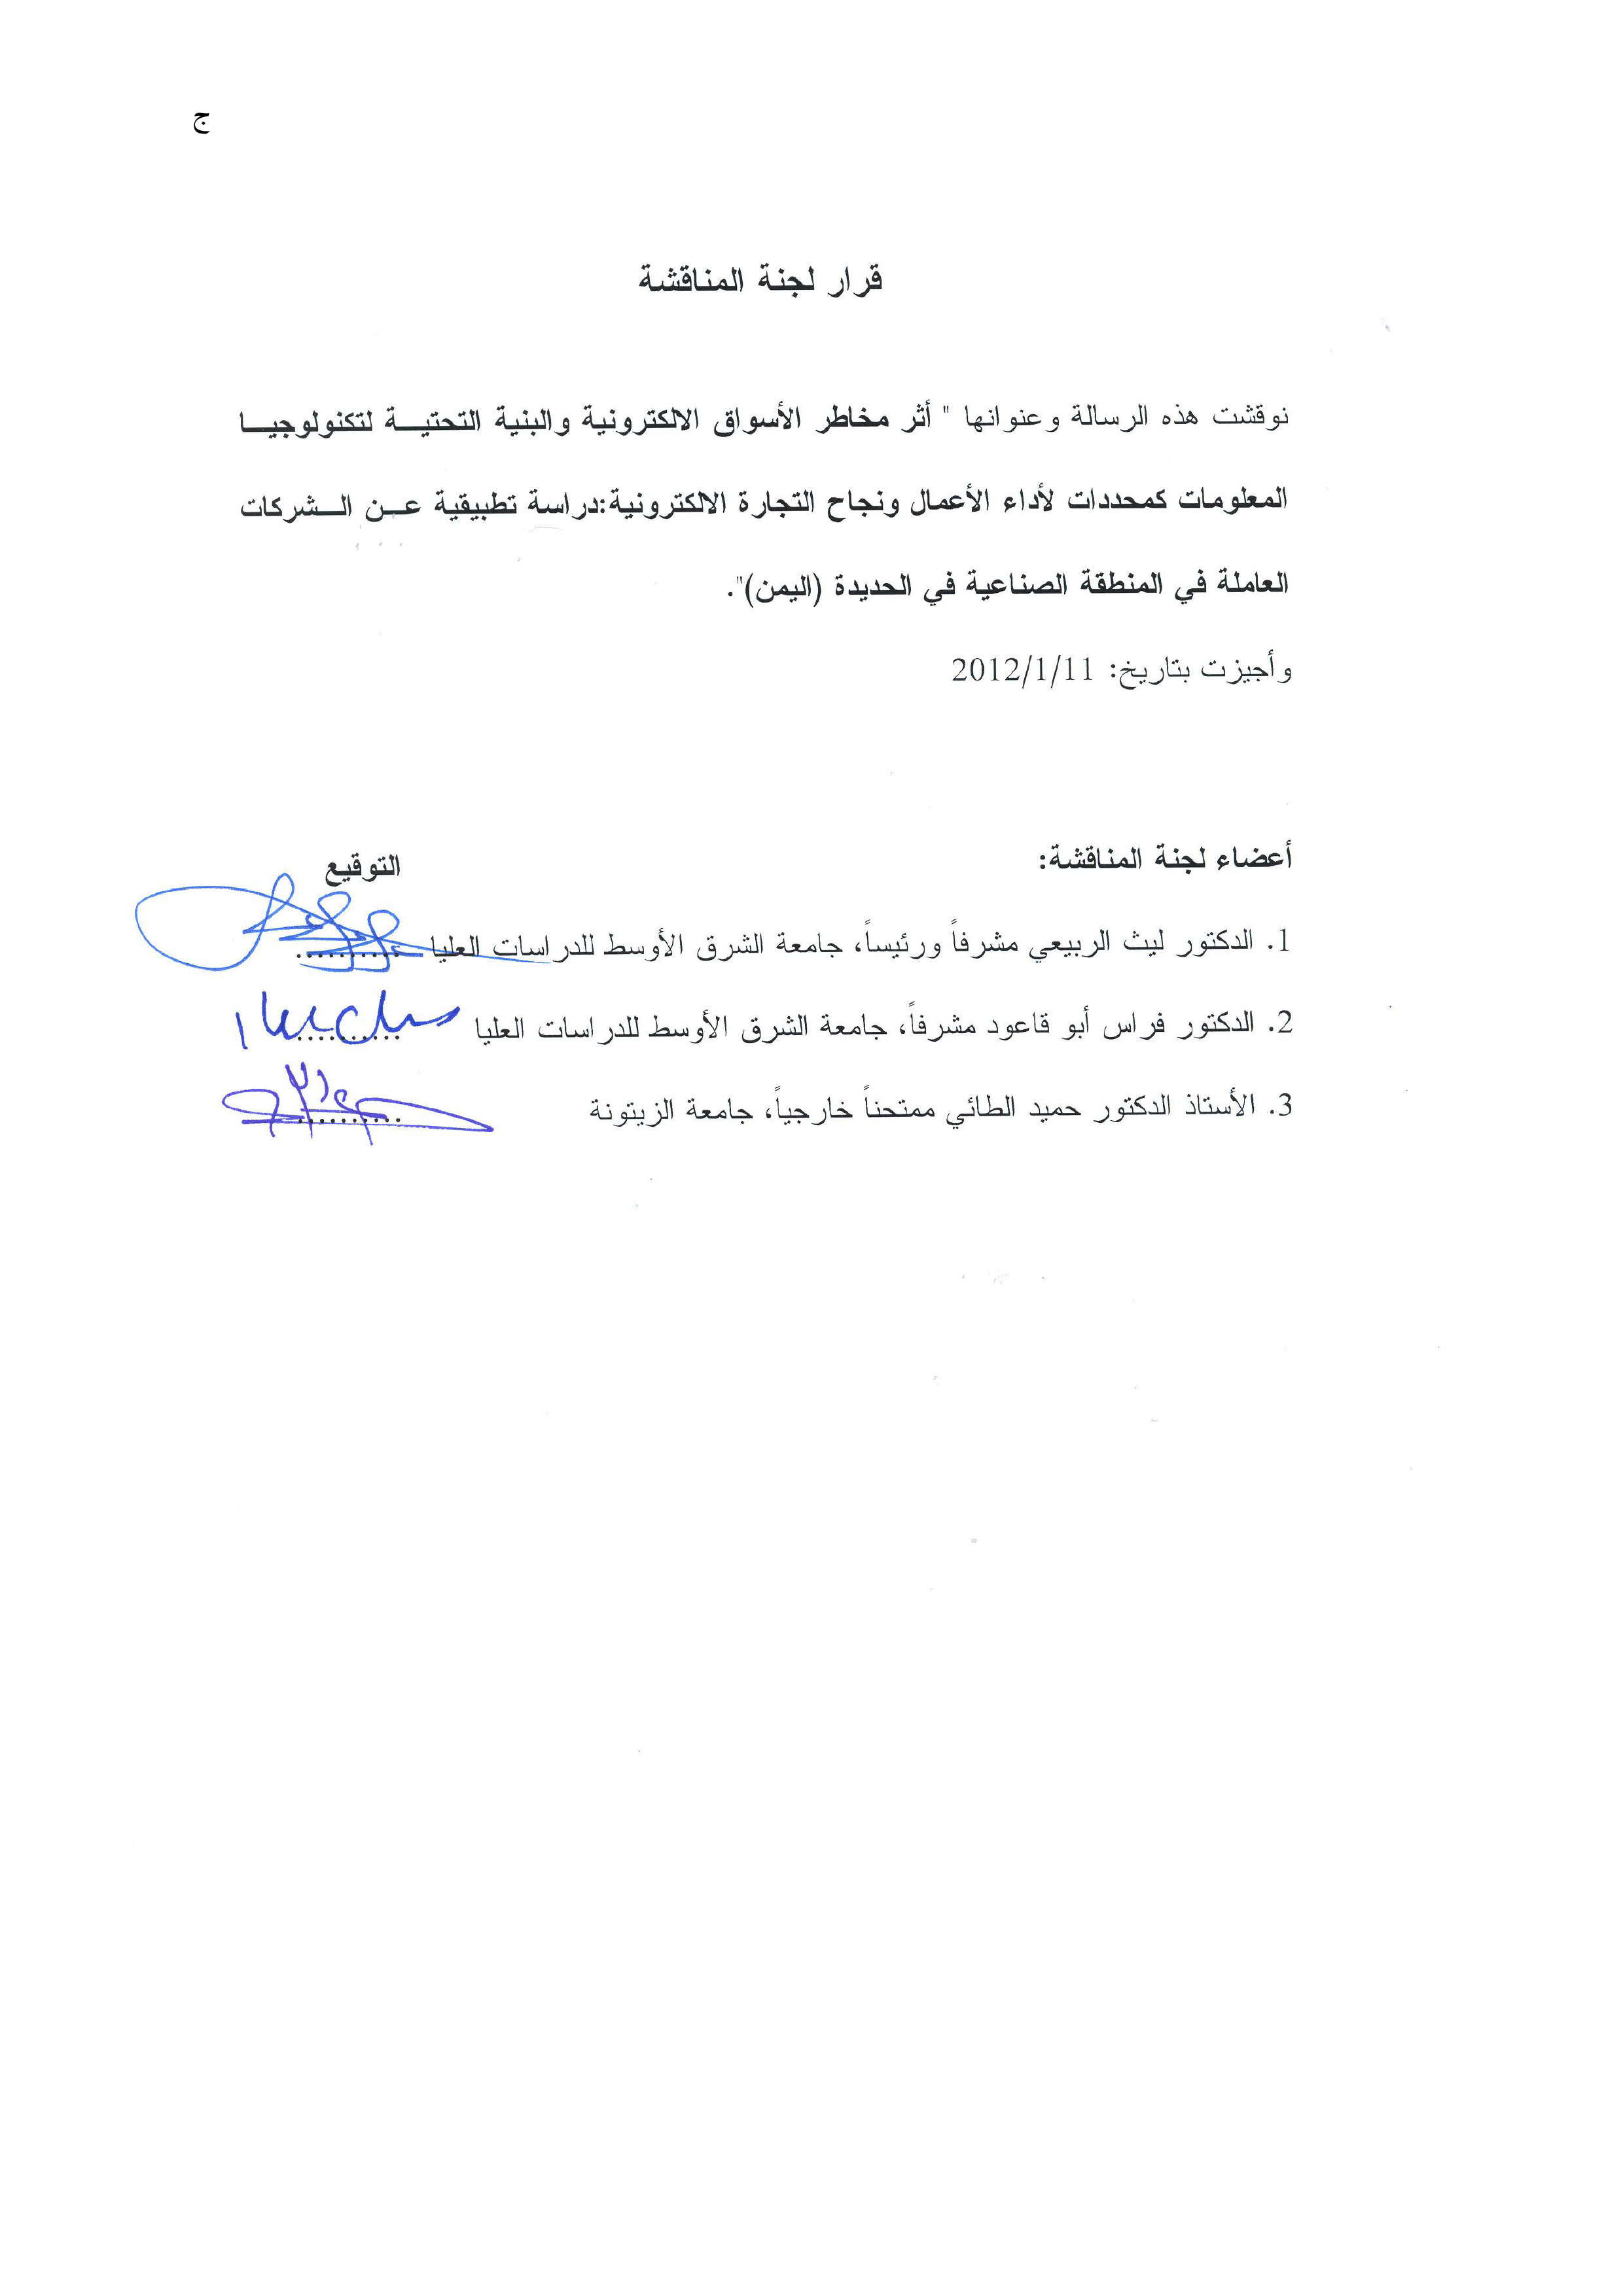 ج
قرار لجنة المناقشة
نوقشت هذه الرسالة وعنوانها " أثر مخاطر الأسواق الالكترونية والبنية التحتيـــة لتكنولوجيـــا
المعلومات كمحددات لأداء الأعمال ونجاح التجارة الالكترونية:دراسة تطبيقية عـــن الـــشركات
العاملة في المنطقة الصناعية في الحديدة (اليمن)".
وأجيزت بتاريخ: 2012/1/11
أعضاء لجنة المناقشة: التوقيع
1. الدكتور ليث الربيعي مشرفاً ورئيساً، جامعة الشرق الأوسط للدراسات العليا ..........
2. الدكتور فراس أبو قاعود مشرفاً، جامعة الشرق الأوسط للدراسات العليا ..........
3. الأستاذ الدكتور حميد الطائي ممتحناً خارجياً، جامعة الزيتونة ..........